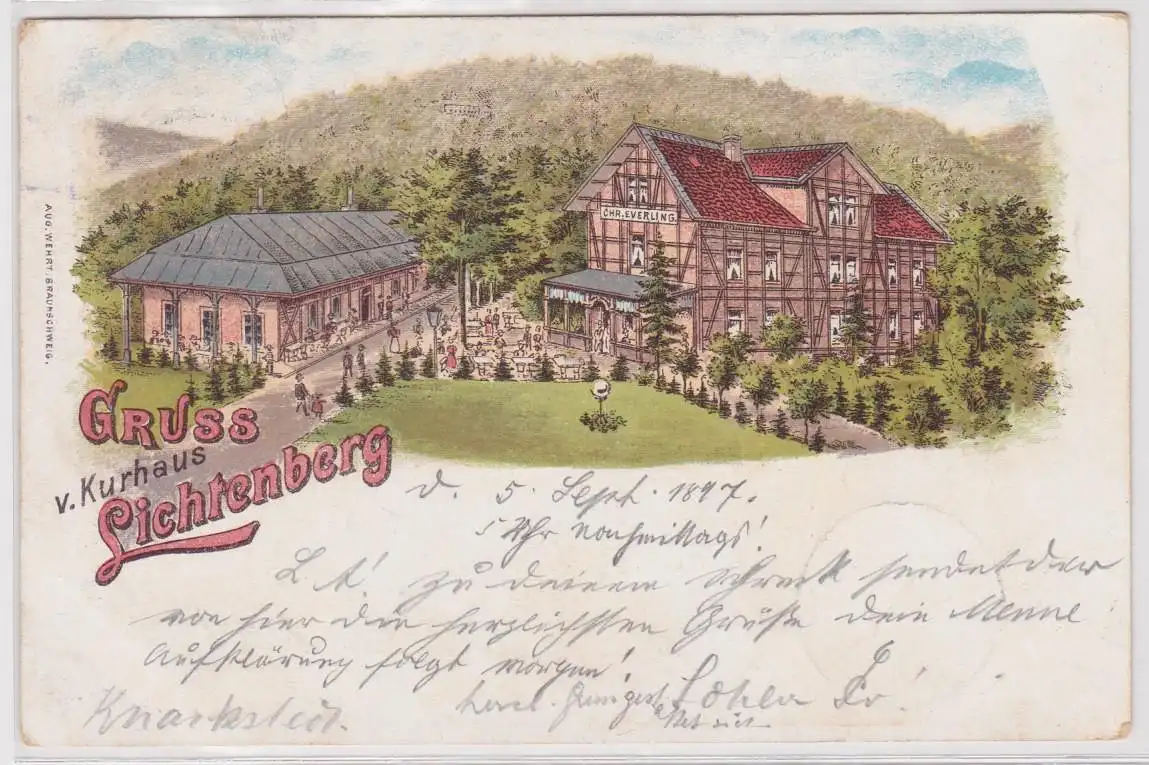 CHR. EVERLING.
AUG. WEHRT, BRAUNSCHWEIG.
GRUSS
v. Kurhaus
Lichtenberg
d. 5. Sept. 1897.
5 Uhr Nachmittags!
L. A! zu deinem Schreck sendet der
von hier die herzlichsten Grüße dein Menne
Aufklärung folgt morgen!
Knackstedt.
herzl.